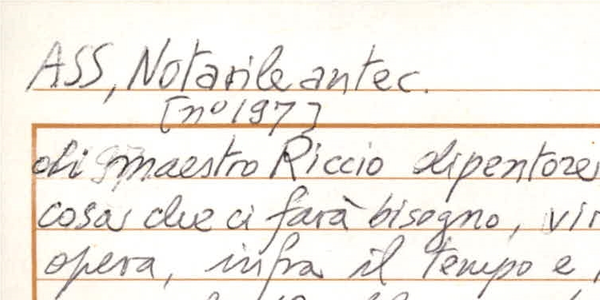 ASS, Notarile antec.
[n° 197]
di maestro Riccio dipentore
cosa che ci farà bisogno,
opera, infra il tempo e